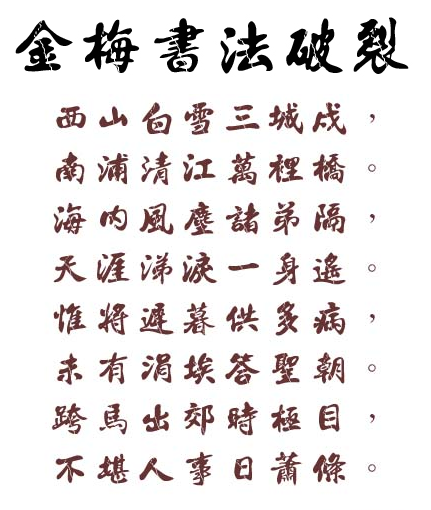 金梅書法破裂
西山白雪三城戍，
南浦清江萬裡橋。
海內風塵諸弟隔，
天涯涕淚一身遙。
惟將遲暮供多病，
未有涓埃答聖朝。
跨馬出郊時極目，
不堪人事日蕭條。